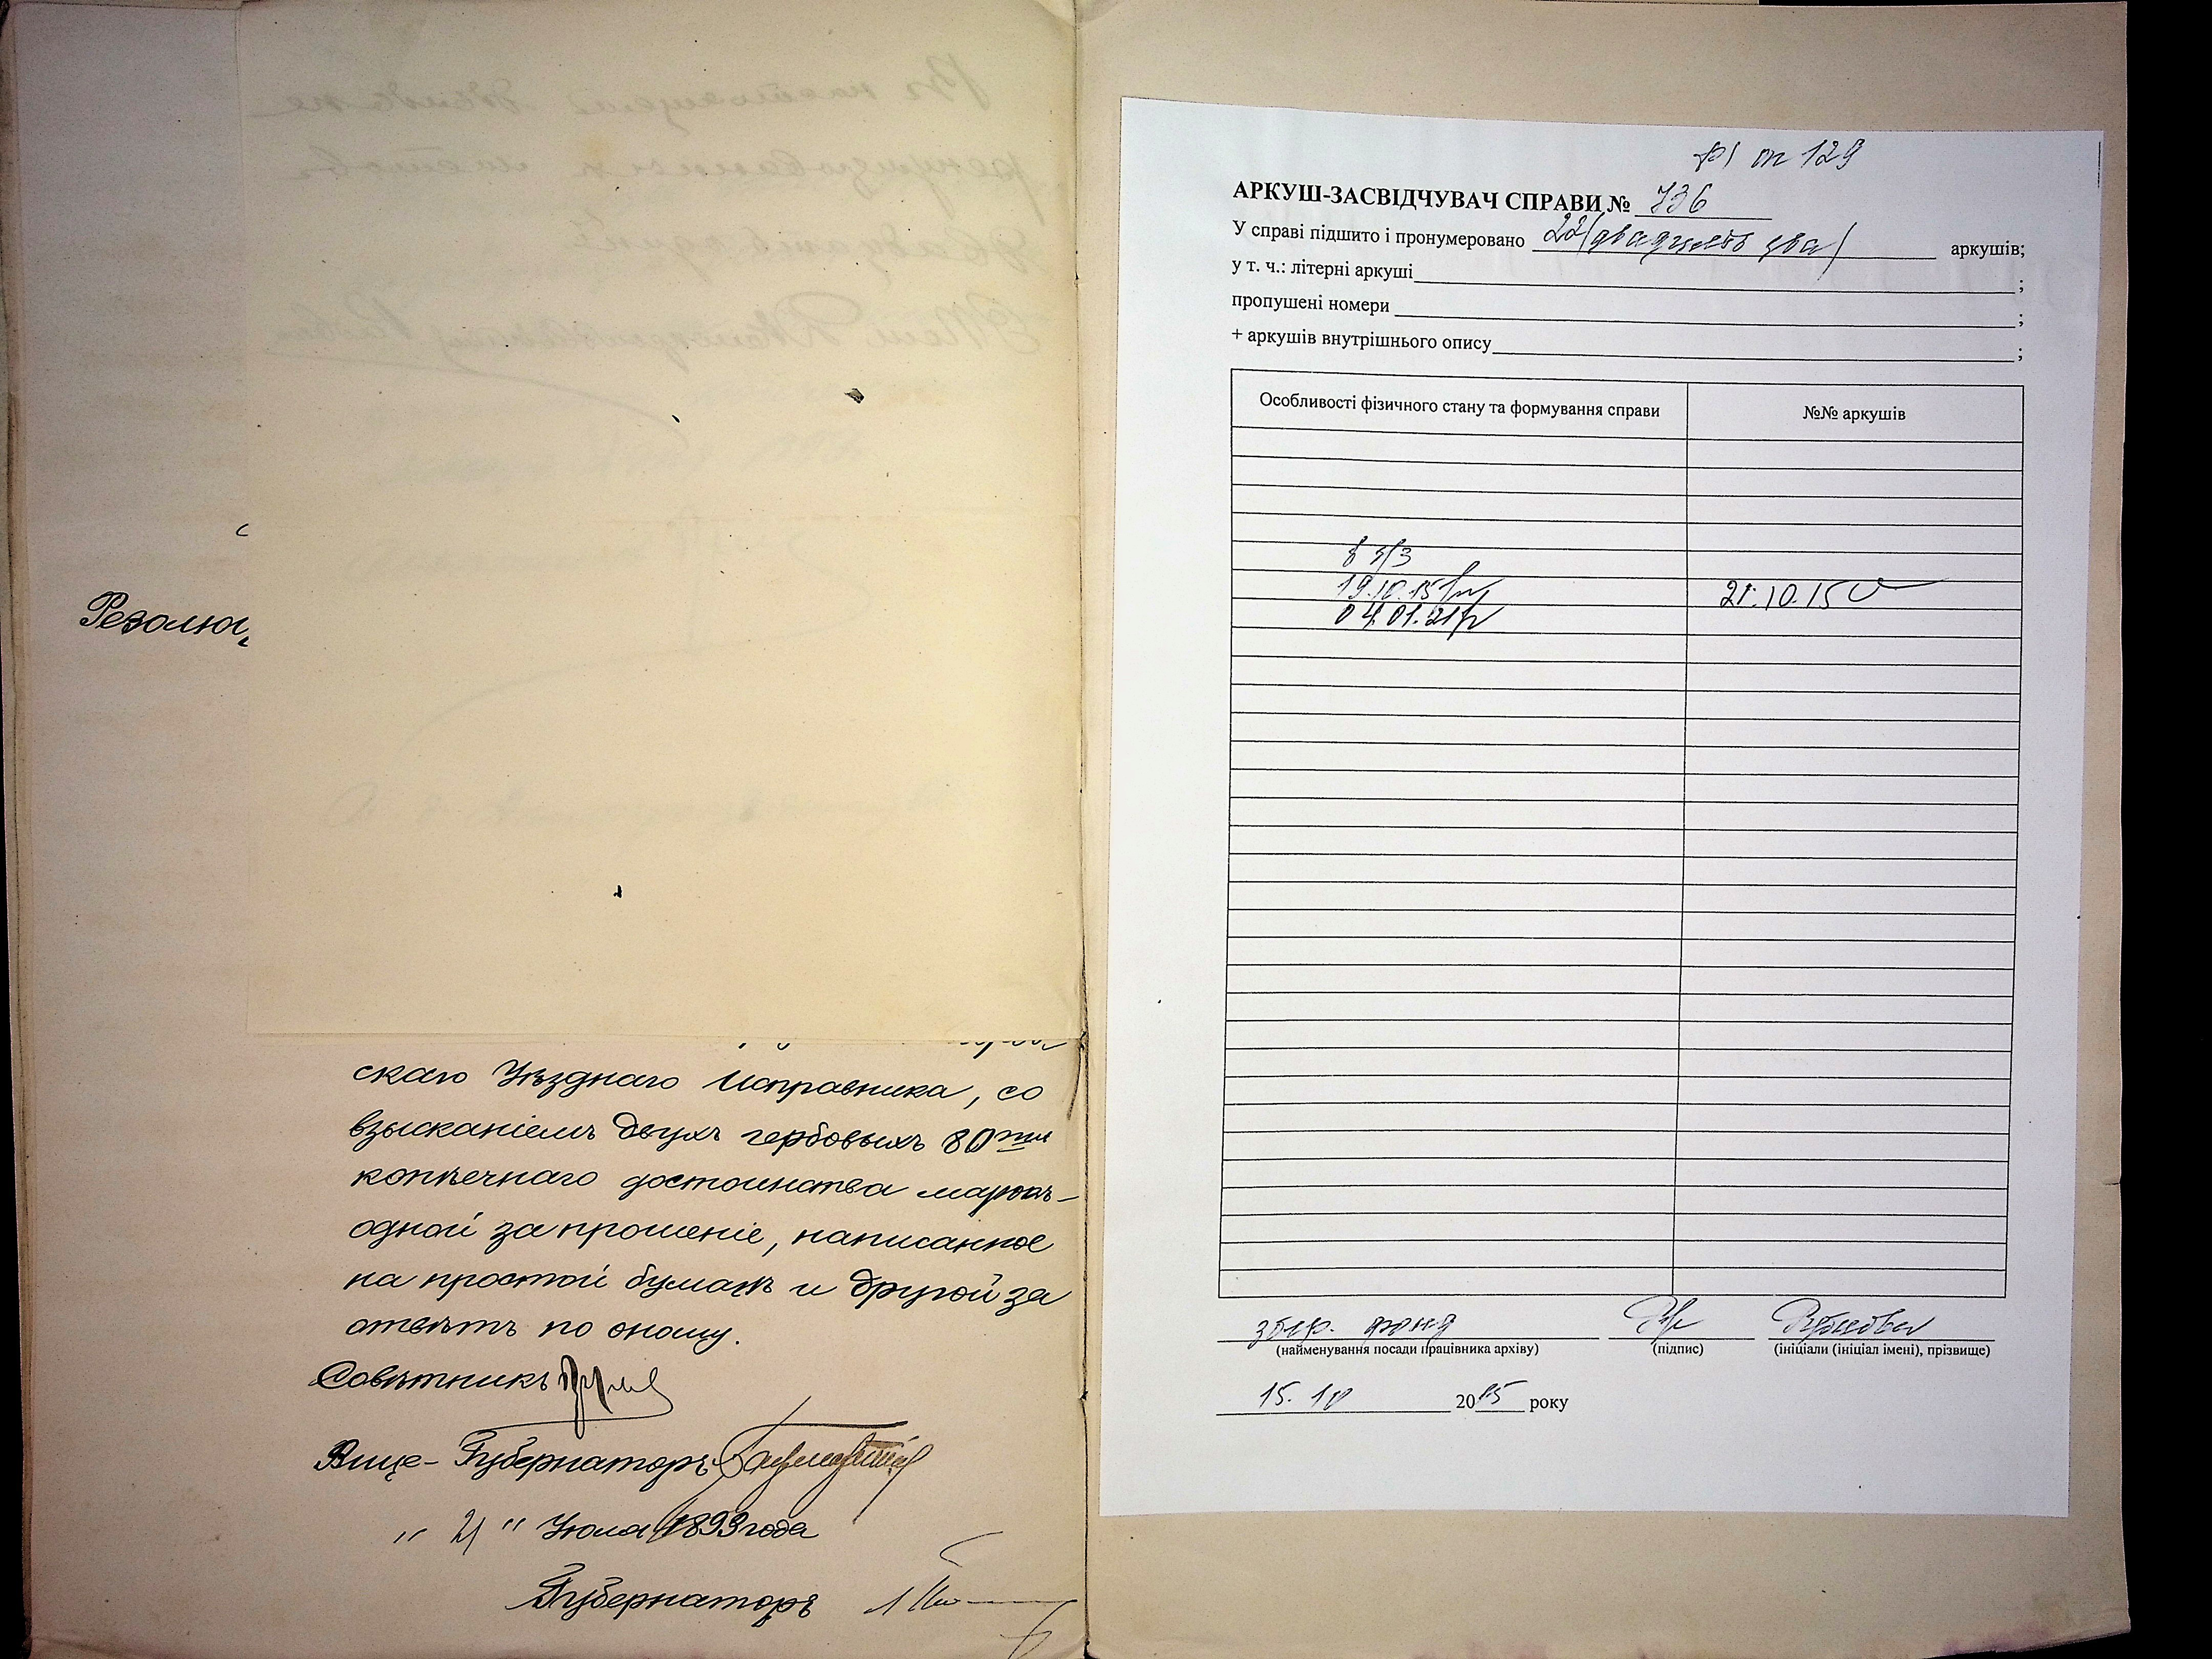 Резолю
скаго Уѣзднаго Исправника, со
взысканіемъ двухъ гербовыхъ 80ти
копѣечнаго достоинства марокъ-
одной за прошеніе, написанное
на простой бумагѣ и другой за
отвѣтъ по оному.
Совѣтникъ
Вице-Губернаторъ
" 21 " Іюля 1893 года
Губернаторъ
ф1 оп 129
АРКУШ-ЗАСВІДЧУВАЧ СПРАВИ № 736
У справі підшито і пронумеровано 22 (двадцять два) аркушів;
у т. ч.: літерні аркуші ;
пропущені номери ;
+ аркушів внутрішнього опису ;
Особливості фізичного стану та формування справи №№ аркушів
19.10.15 21.10.15
04.01.21
збер. фонд
(найменування посади працівника архіву) (підпис) (ініціали (ініціал імені), прізвище)
15.10 2015 року